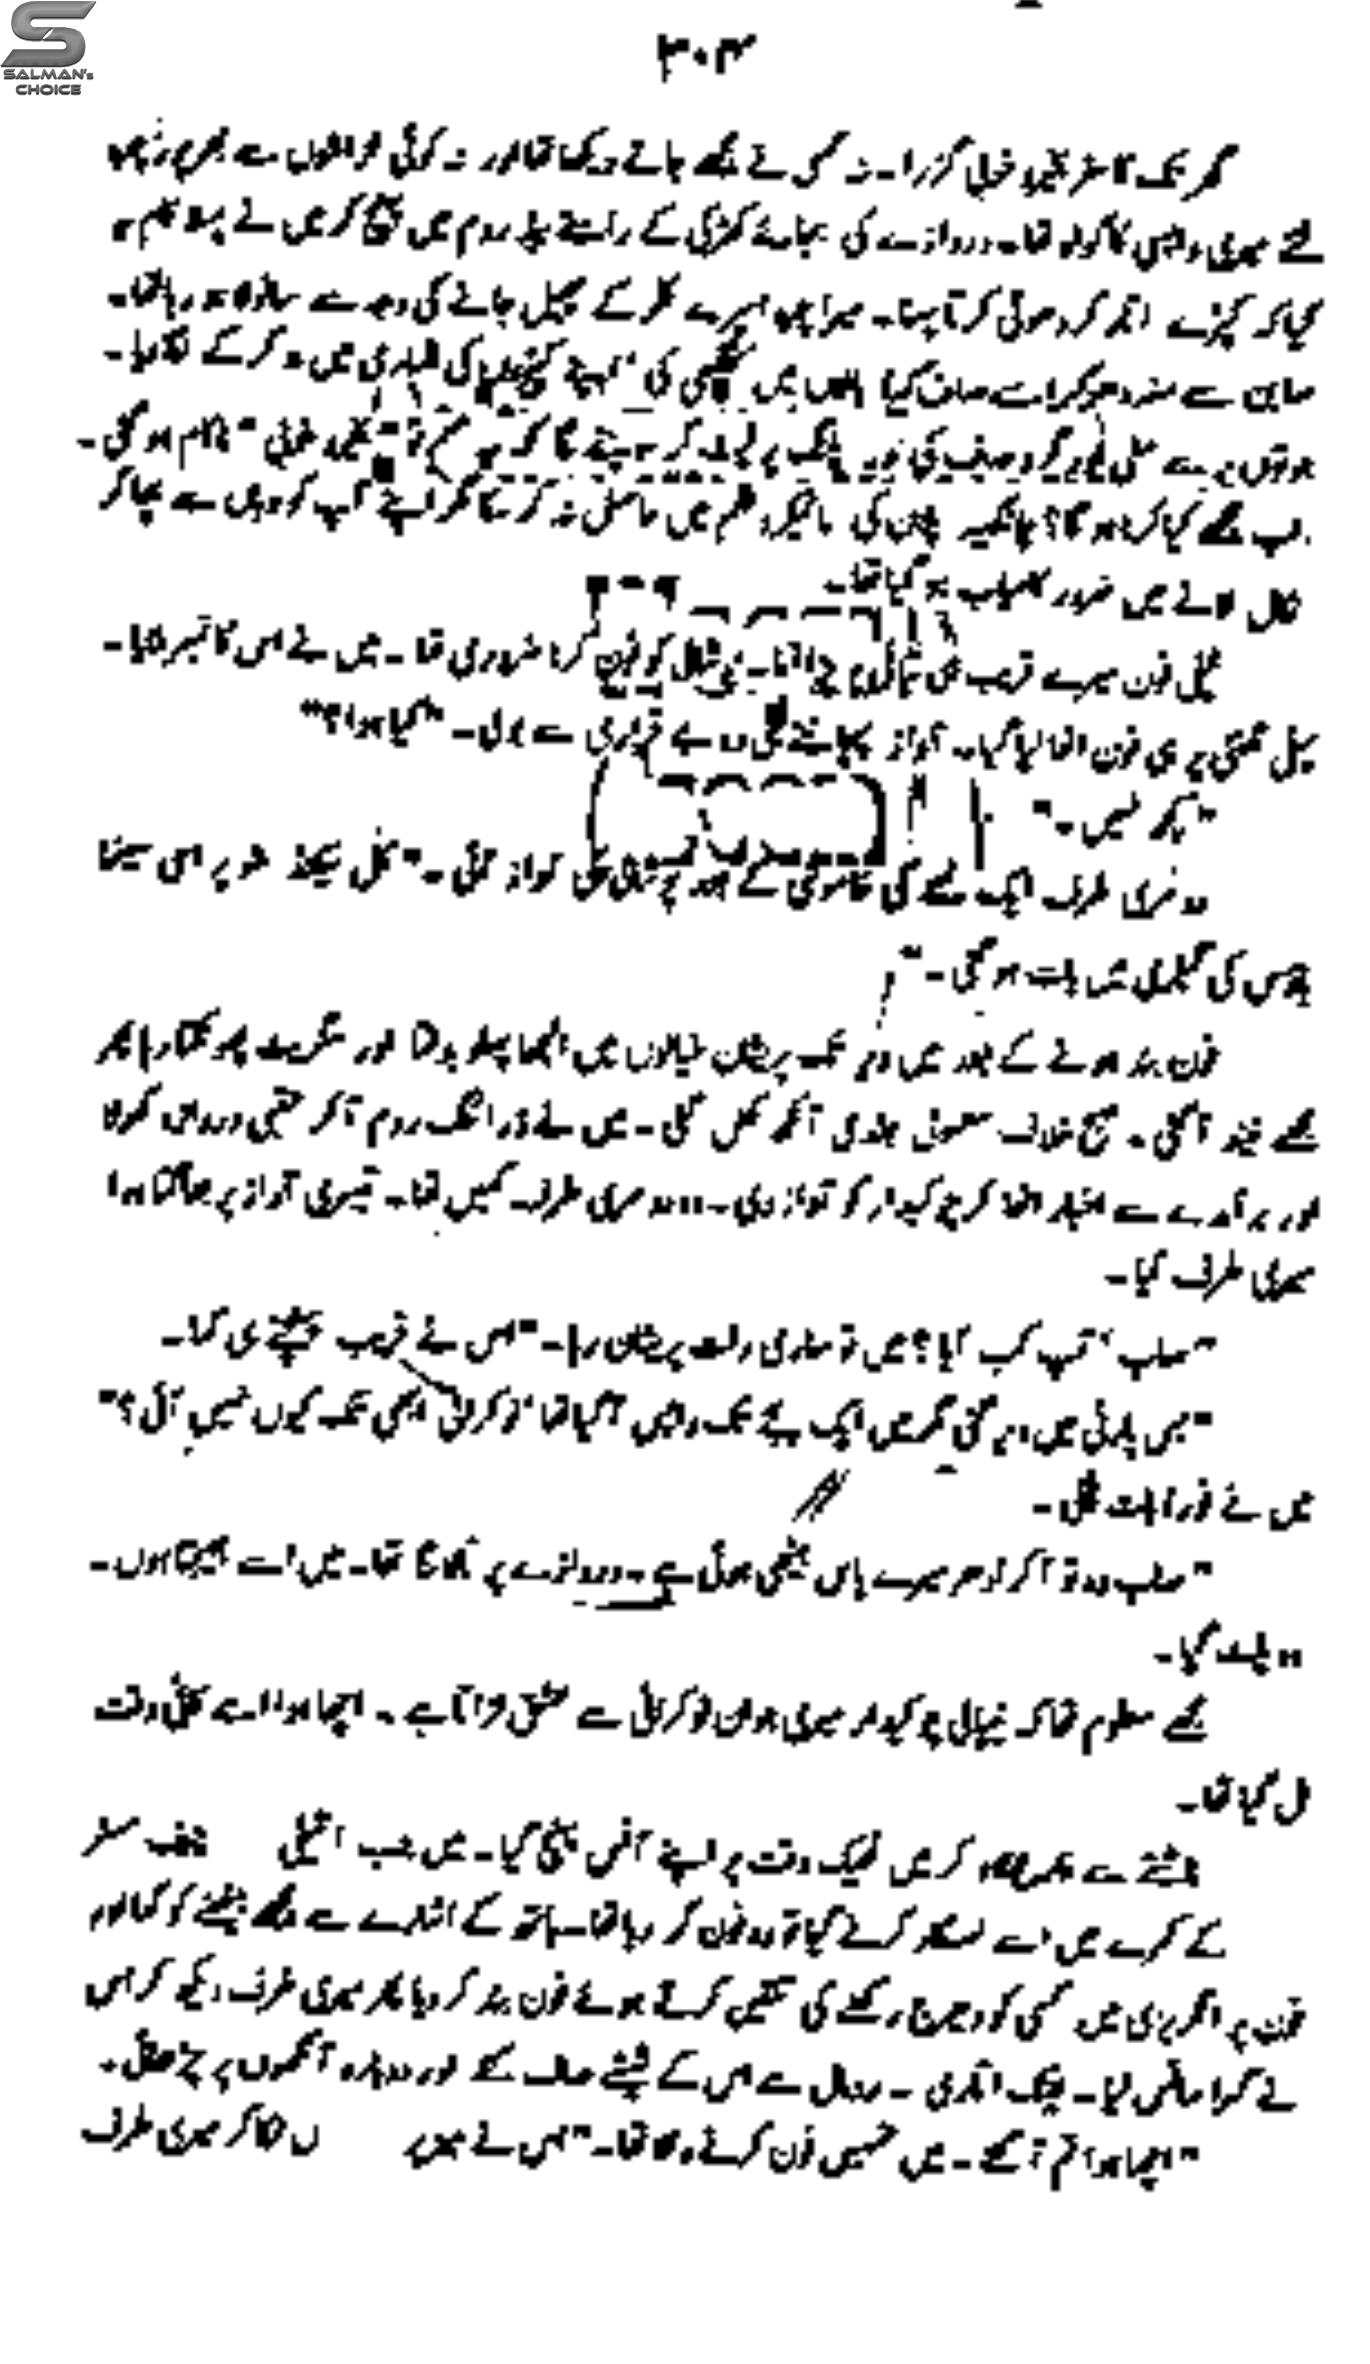 SALMAN's
CHOICE
۳۰۴
گھر تک کا سفر بخیر و خوبی گزرا۔ نہ کسی نے مجھے جاتے دیکھا تھا اور نہ کوئی
لئے میری واپسی کا گواہ تھا۔ دروازے کی بجائے کھڑکی کے راستے بیڈ روم میں پہنچ کر میں نے پہلا کام یہ
کیا کہ کپڑے اتار کر دھوتی کرتا پہنا۔ میرا چہرہ میرے کلر کے پھیل جانے کی وجہ سے سانولا ہو رہا تھا۔
صابن سے منہ دھو کر اسے صاف کیا بالوں میں کنگھی کی کپڑوں کی الماری میں بند کر کے
جوتوں پر سے مل گرد صاف کی پلنگ پر لیٹ کر سوچنے لگا کہ یہ مہم تو ناکام ہو گئی۔
اب مجھے کیا کرنا ہو گا؟ فلم میں حاصل نہ کر سکا مگر اپنے آپ کو وہاں سے بچا کر
نکال لانے میں ضرور کامیاب ہو گیا تھا۔
ٹیلی فون میرے قریب ہی تپائی پر پڑا تھا۔ کو فون کرنا ضروری تھا۔ میں نے اس کا نمبر ملایا۔
پہلی گھنٹی پر ہی فون اٹھا لیا گیا۔ آواز پہچانتے ہی وہ بے قراری سے بولی۔ "کیا ہوا؟"
"کچھ نہیں۔"
دوسری طرف ایک لمحے کی خاموشی کے بعد پریشان سی آواز آئی۔ "کل سیکنڈ شو پر اسی سینما
ہاؤس کی گیلری میں بات ہو گی۔"
فون بند ہونے کے بعد میں دیر تک پریشان خیالوں میں الجھا پہلو بدلتا اور سگریٹ پھونکتا رہا پھر
مجھے نیند آ گئی۔ صبح خلاف معمول جلدی آنکھ کھل گئی۔ میں نے ڈرائنگ روم آ کر عقبی دروازہ کھولا
اور برآمدے سے اخبار اٹھا کر چوکیدار کو آواز دی۔ وہ دوسری طرف کہیں تھا۔ تیسری آواز پر بھاگتا ہوا
میری طرف آیا۔
"صاب' آپ کب آیا؟ میں تو ساری رات پریشان رہا۔" اس نے قریب پہنچتے ہی کہا۔
"بس پارٹی میں دیر ہو گئی مگر میں ایک بجے تک واپس آ گیا تھا' نوکرانی ابھی تک کیوں نہیں آئی؟"
میں نے فوراً بات ٹالی۔
"صاب وہ تو آ کر ادھر میرے پاس بیٹھی ہوئی ہے۔ دروازے پر تالا لگا تھا۔ میں اسے بھیجتا ہوں۔
وہ پلٹ گیا۔
مجھے معلوم تھا کہ نیپالی چوکیدار میری جوان نوکرانی سے عشق فرماتا ہے۔ اچھا ہوا اسے کافی وقت
مل گیا تھا۔
ناشتے سے فارغ ہو کر میں ٹھیک وقت پر اپنے آفس پہنچ گیا۔ میں جب اسٹیل
کے کمرے میں اسے نمسکار کرنے گیا تو وہ فون کر رہا تھا۔ ہاتھ کے اشارے سے مجھے بیٹھنے کو کہا اور
فون پر انگریزی میں کسی کو دھیرج رکھنے کی تلقین کرتے ہوئے فون بند کر دیا پھر میری طرف دیکھ کر اس
نے گہرا سانس لیا۔ عینک اتاری۔ رومال سے اس کے شیشے صاف کئے اور دوبارہ آنکھوں پر چڑھائی۔
"اچھا ہوا تم آ گئے۔ میں تمہیں فون کرنے والا تھا۔" اس نے میری طرف